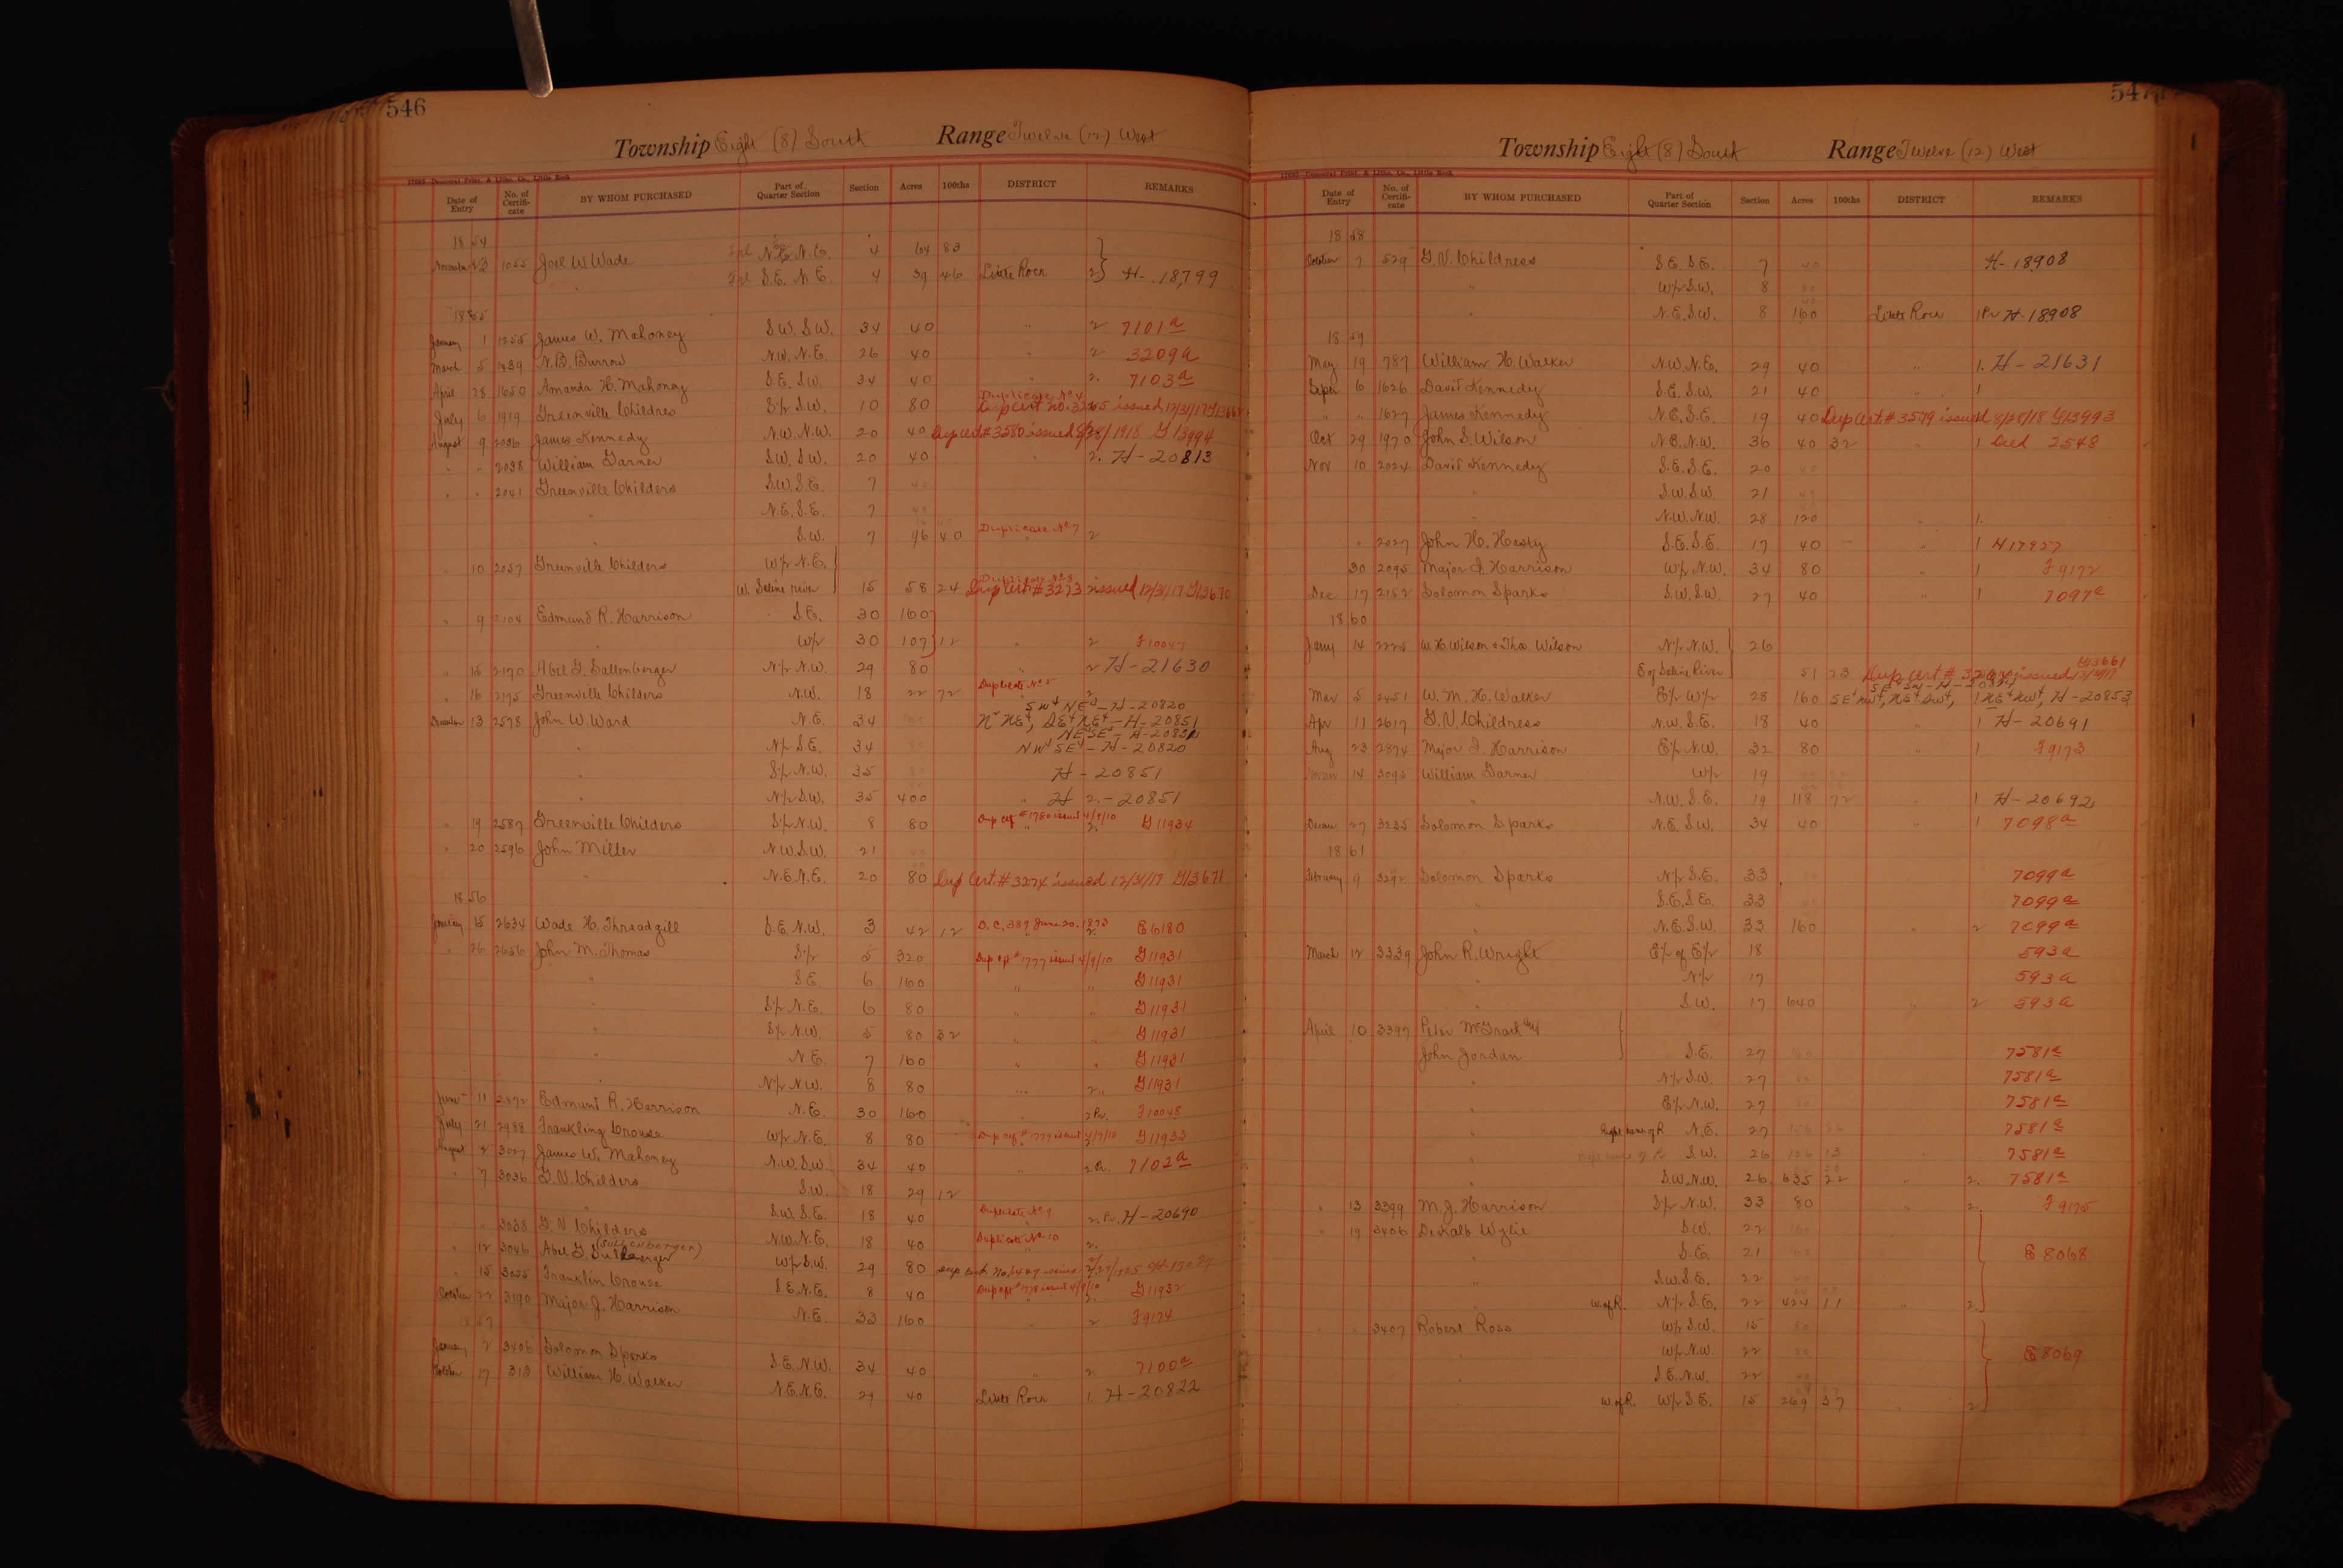 546
Township Eight (8) South Range Twelve (12) West
Date of Entry No. of Certificate BY WHOM PURCHASED Part of Quarter Section Section Acres 100ths DISTRICT REMARKS
1854
1055 Joel W. Wade N.E. 4 64 83
" S.E. N.E. 4 39 46 Little Rock 2 H-18,799
1855
January 1 1255 James W. Mahoney S.W. S.W. 34 40 " 2 7101 a
March 5 1439 N.B. Burrow N.W. N.E. 26 40 " 2 3209 a
April 28 1650 Amanda H. Mahoney S.E. S.W. 34 40 " 2. 7103 a
July 6 1919 Greenville Childres S½ S.W. 10 80 Duplicate No 4 issued 12/31/17
August 9 2036 James Kennedy N.W. N.W. 20 40 Dup Cert # 3580 issued 8/28/1918 G 13994
" " 2038 William Garner S.W. S.W. 20 40 " 2. H-20813
" " 2041 Greenville Childers S.W. S.E. 7 40
" N.E. S.E. 7 40
" S.W. 7 96 40 Duplicate No 7 2
" 10 2057 Greenville Childers W½ N.E.
W. Seline river 15 58 24 Dup Cert # 3273 issued 12/31/17 G13670
" 9 2104 Edmund R. Harrison S.E. 30 160
" W½ 30 107 12 " 2 F10047
" 15 2170 Abel G. Sallenberger N½ N.W. 29 80 " 2 H-21630
" 16 2175 Greenville Childers N.W. 18 22 72 Duplicate No 5 2
SW¼ NE¼-H-20820
December 13 2578 John W. Ward N.E. 34 160 SE¼ NE¼-H-20851
" N½ S.E. 34 80 NW¼ SE¼-H-20820
" S½ N.W. 35 80 H-20851
" N½ S.W. 35 400 " H 2.-20851
" 19 2587 Greenville Childers S½ N.W. 8 80 Dup Cert #1780 issued 4/9/10 2. G11934
" 20 2596 John Miller N.W. S.W. 21
" N.E. N.E. 20 80 Dup Cert. # 3274 issued 12/31/17 G13671
1856
January 15 2634 Wade H. Threadgill S.E. N.W. 3 42 12 D.C. 389 June 20. 1873 2. E6180
" 26 2656 John M. Thomas S½ 5 320 Dup Cert # 1777 issued 4/9/10 G11931
" S.E. 6 160 " " G11931
" S½ N.E. 6 80 " " G11931
" S½ N.W. 5 80 32 " " G11931
" N.E. 7 160 " " G11931
" N½ N.W. 8 80 " 2 " G11931
June 11 2872 Edmund R. Harrison N.E. 30 160 " 2 Pr. F10048
July 21 2988 Frankling Crouse W½ N.E. 8 80 issued 4/9/10 2 G11933
August 2 3027 James W. Mahoney N.W. S.W. 34 40 " 2 Pr. 7102 a
" 7 3036 G.N. Childers S.W. 18 29 12
" S.W. S.E. 18 40 Duplicate No 9 2. Pr. H-20690
" " 3038 G.N. Childers N.W. N.E. 18 40 Duplicate No 10 2.
(Sullenberger)
" 12 3046 Abel G. W½ S.W. 29 80
" 15 3055 Franklin Crouse S.E. N.E. 8 40 issued 4/9/10 2. G11932
October 22 3190 Major J. Harrison N.E. 33 160 " 2 F9174
1857
January 2 3406 Solomon Sparks S.E. N.W. 34 40 " 2 7100 a
October 17 313 William H. Walker N.E. N.E. 29 40 Little Rock 1. H-20822
547
Township Eight (8) South Range Twelve (12) West
Date of Entry No. of Certificate BY WHOM PURCHASED Part of Quarter Section Section Acres 100ths DISTRICT REMARKS
1858
October 7 529 G.N. Childress S.E. S.E. 7 40 H-18908
" W½ S.W. 8 80
" N.E. S.W. 8 160 Little Rock 1 Pr H-18908
1859
May 19 787 William H. Walker N.W. N.E. 29 40 " 1. H-21631
Sept 6 1626 David Kennedy S.E. S.W. 21 40 " 1
" " 1627 James Kennedy N.E. S.E. 19 40 Dup Cert. # 3579 issued 8/28/18 G13993
Oct 29 1970 John S. Wilson N.E. N.W. 36 40 32 " 1 Ded 2548
Nov 10 2024 David Kennedy S.E. S.E. 20 40
" S.W. S.W. 21 40
" N.W. N.W. 28 120 " 1.
" 2027 John H. Hesty S.E. S.E. 17 40 " 1 H17957
30 2095 Major J. Harrison W½ N.W. 34 80 " 1 F9172
Dec 17 2152 Solomon Sparks S.W. S.W. 27 40 " 1 7097 a
1860
Jany 14 2225 W.H. Wilson & Tho. Wilson N½ N.W. 26
E of Seline River 51 23 Dup Cert # issued G13661
Mar 5 2451 W.M.H. Walker E½ W½ 28 160 SE¼ NW¼, NE¼ SW¼, 1 NE¼ NW¼, H-20853
Apr 11 2617 G.N. Childress N.W. S.E. 18 40 " 1 H-20691
Aug 23 2874 Major J. Harrison E½ N.W. 32 80 " 1 F9173
14 3095 William Garner W½ 19
" N.W. S.E. 19 118 72 " 1 H-20692
27 3235 Solomon Sparks N.E. S.W. 34 40 " 1 7098 a
1861
February 9 3292 Solomon Sparks N½ S.E. 33 80 7099 a
" S.E. S.E. 33 7099 a
" N.E. S.W. 33 160 " 2 7099 a
March 12 3339 John R. Wright E½ of E½ 18 593 a
" N½ 17 593 a
" S.W. 17 640 " 2 593 a
April 10 3397 Peter McGrath and
John Jordan S.E. 27 160 7581 a
" N½ S.W. 27 80 7581 a
" E½ N.W. 27 80 7581 a
" Right bank of R N.E. 27 7581 a
" S.W. 26 7581 a
" S.W. N.W. 26 635 22 " 2. 7581 a
" 13 3399 M.J. Harrison S½ N.W. 33 80 " 2. F9175
" 19 3406 DeKalb Wylie S.W. 22 160
" S.E. 21 160 E8068
" S.W. S.E. 22 40
" W. of R. N½ S.E. 22 424 11 " 2.
" " 3407 Robert Ross W½ S.W. 15 80
" W½ N.W. 22 80 E8069
" S.E. N.W. 22 40
" W. of R. W½ S.E. 15 269 37 " 2